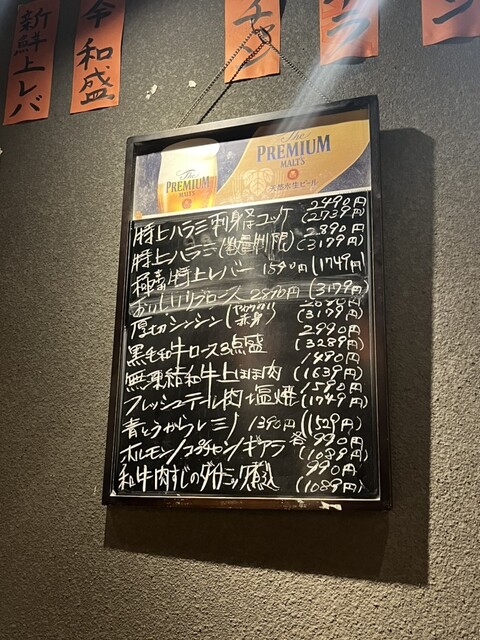 新鮮上レバ
令和盛
The
PREMIUM
MALT'S
The
PREMIUM
MALT'S
天然水生ビール
特上ハラミ刺身風ユッケ 2490円
(2739円)
特上ハラミ(数量制限) 2890円
(3179円)
極厚特上レバー 1590円 (1749円)
おいしいリブロース 2890円 (3179円)
厚切シンシン(やわらかい赤身) 2890円
(3179円)
黒毛和牛ロース3点盛 2990円
(3289円)
無凍結和牛上ほほ肉 1490円
(1639円)
フレッシュテール肉塩焼 1590円
(1749円)
青とうがらしミノ 1390円 (1529円)
ホルモン/コプチャン/ギアラ 各990円
(1089円)
和牛肉すじのダイナミック煮込 990円
(1089円)